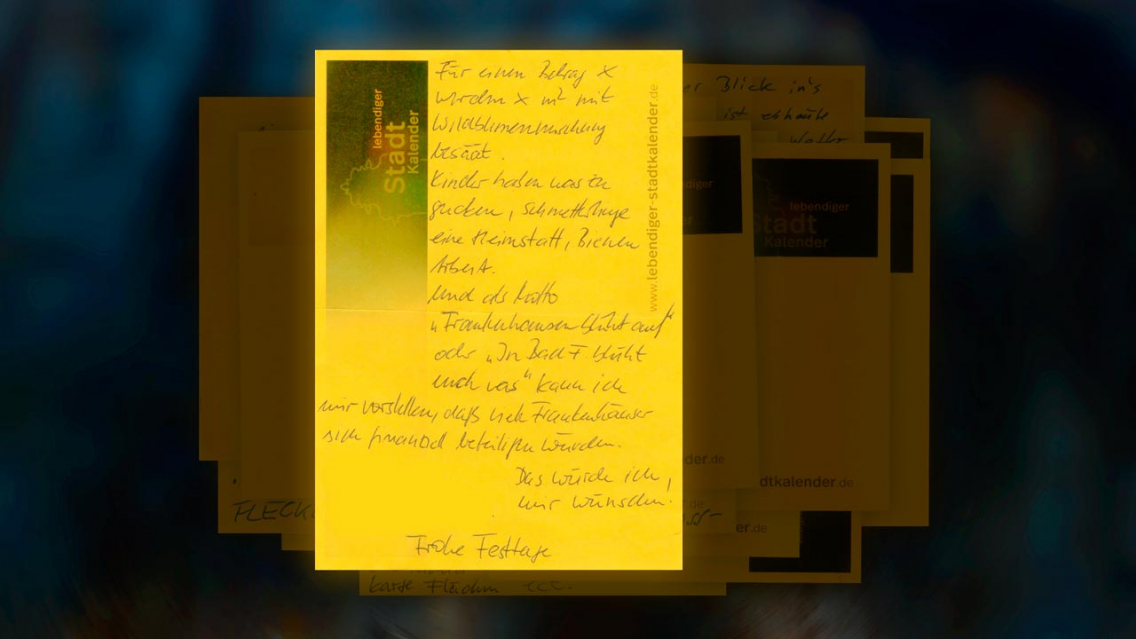 Für einen Betrag X
werden X m² mit
Wildblumenmischung
besäat.
Kinder haben was zu
gucken, Schmetterlinge
eine Heimstatt, Bienen
Arbeit.
Und als Motto
„Frankenhausen blüht auf“
oder „In Bad F blüht
euch was“ kann ich
mir vorstellen, daß viele Frankenhäuser
sich finanziell beteiligen würden.
Das würde ich
mir wünschen!
Frohe Festtage
lebendiger
Stadt
Kalender
www.lebendiger-stadtkalender.de
Blick in's
ist
lebendiger
Stadt
Kalender
dtkalender.de
der.de
er.de
FLECK
karge Flächen ecc.